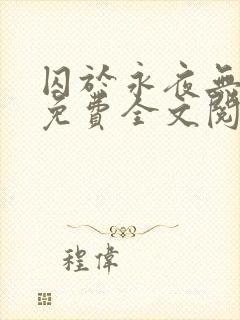 囚於永夜無
免費全文閱
程偉